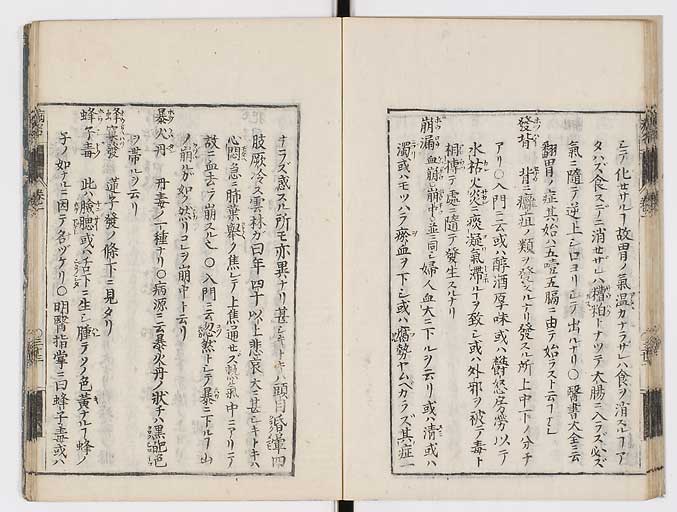 シテ化セサルヿ故胃ノ氣温カナラザレハ食ヲ消スルヿア
タハズ食スデニ消セザレハ糟粕トナツテ大腸ニ入ラズ必ズ
氣ニ隨テ逆上シ口ヨリシテ出ルナリ〇醫書大全ニ云
翻胃ノ症其始ハ五噎五膈ニ由テ始ラスト云フヿナシ
發背 背ニ癰疽ノ類ヲ發スルナリ發スル所上中下ノ分チ
アリ〇入門ニ云或ハ醇酒厚味或ハ鬱怒房勞以テ
水枯火炎痰凝氣滯ルヿヲ致シ或ハ外邪ヲ被テ毒ト
相傳テ處ニ隨テ發生スルナリ
崩漏 血崩崩中並ニ同シ婦人血大ニ下ルヲ云リ或ハ清或ハ
濁或ハモツハラ瘀血ヲ下シ或ハ腐勢ヤムベカラズ其症一
ナラズ感スル所モ亦異ナリ甚シキトキハ頭目昏暈四
肢厥冷ス雲林カ曰年四十以上悲哀大ニ甚シキトキハ
心悶急ニ肺葉擧ク焦シテ上焦通セズ熱氣中ニアリテ
故ニ血走テ崩スルヿ〇入門ニ云忽然トシテ暴ニ下ルヿ山
ノ崩ガ如ク然リコレヲ崩中ト云リ
暴火丹 丹毒ノ一種ナリ〇病源ニ云暴火丹ノ狀チハ黒色
ヲ帶ルヲ云リ
蜂窠發 蓮子發ノ條下ニ見タリ
蜂子毒 此ハ臉腮或ハ舌下ニ生シ腫ラノ色黄ナルヿ蜂ノ
子ノ如ナルニ因テ名ヅケリ〇明醫指掌ニ曰蜂子毒或ハ